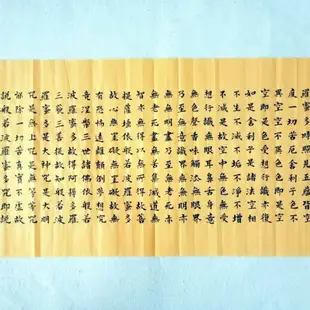 羅蜜多時照見五蘊皆空
度一切苦厄舍利子色不
異空空不異色色即是空
空即是色受想行識亦復
如是舍利子是諸法空相
不生不滅不垢不淨不增
不減是故空中無色無受
想行識無眼耳鼻舌身意
無色聲香味觸法無眼界
乃至無意識界無無明亦
無無明盡乃至無老死亦
無老死盡無苦集滅道無
智亦無得以無所得故菩
提薩埵依般若波羅蜜多
故心無罣礙無罣礙故無
有恐怖遠離顛倒夢想究
竟涅槃三世諸佛依般若
波羅蜜多故得阿耨多羅
三藐三菩提故知般若波
羅蜜多是大神咒是大明
咒是無上咒是無等等咒
能除一切苦真實不虛故
說般若波羅蜜多咒即說